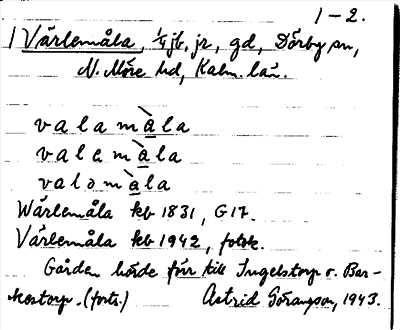 1-2.
Värlemåla, 1/4 jb, jr, gd, Dörby sn,
N. Möre hd, Kalm. län.
valamàla
valemàla
valomàla
Wärlemåla kb 1831, G17.
Värlemåla kb 1942, fotok.
Gården hörde förr till Ingelstorp o. Bar-
kestorp. (forts.) Astrid Göransson, 1943.